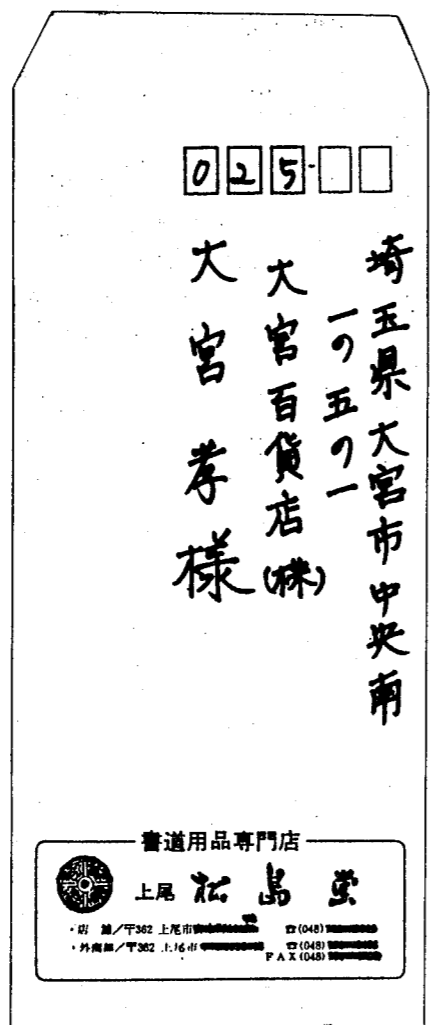 025-
埼玉県大宮市中央南
一の五の一
大宮百貨店(株)
大宮孝様
書道用品専門店
上尾 松島堂
・店 舗/〒362 上尾市
☎(048)
・外商部/〒362 上尾市
☎(048)
FAX(048)